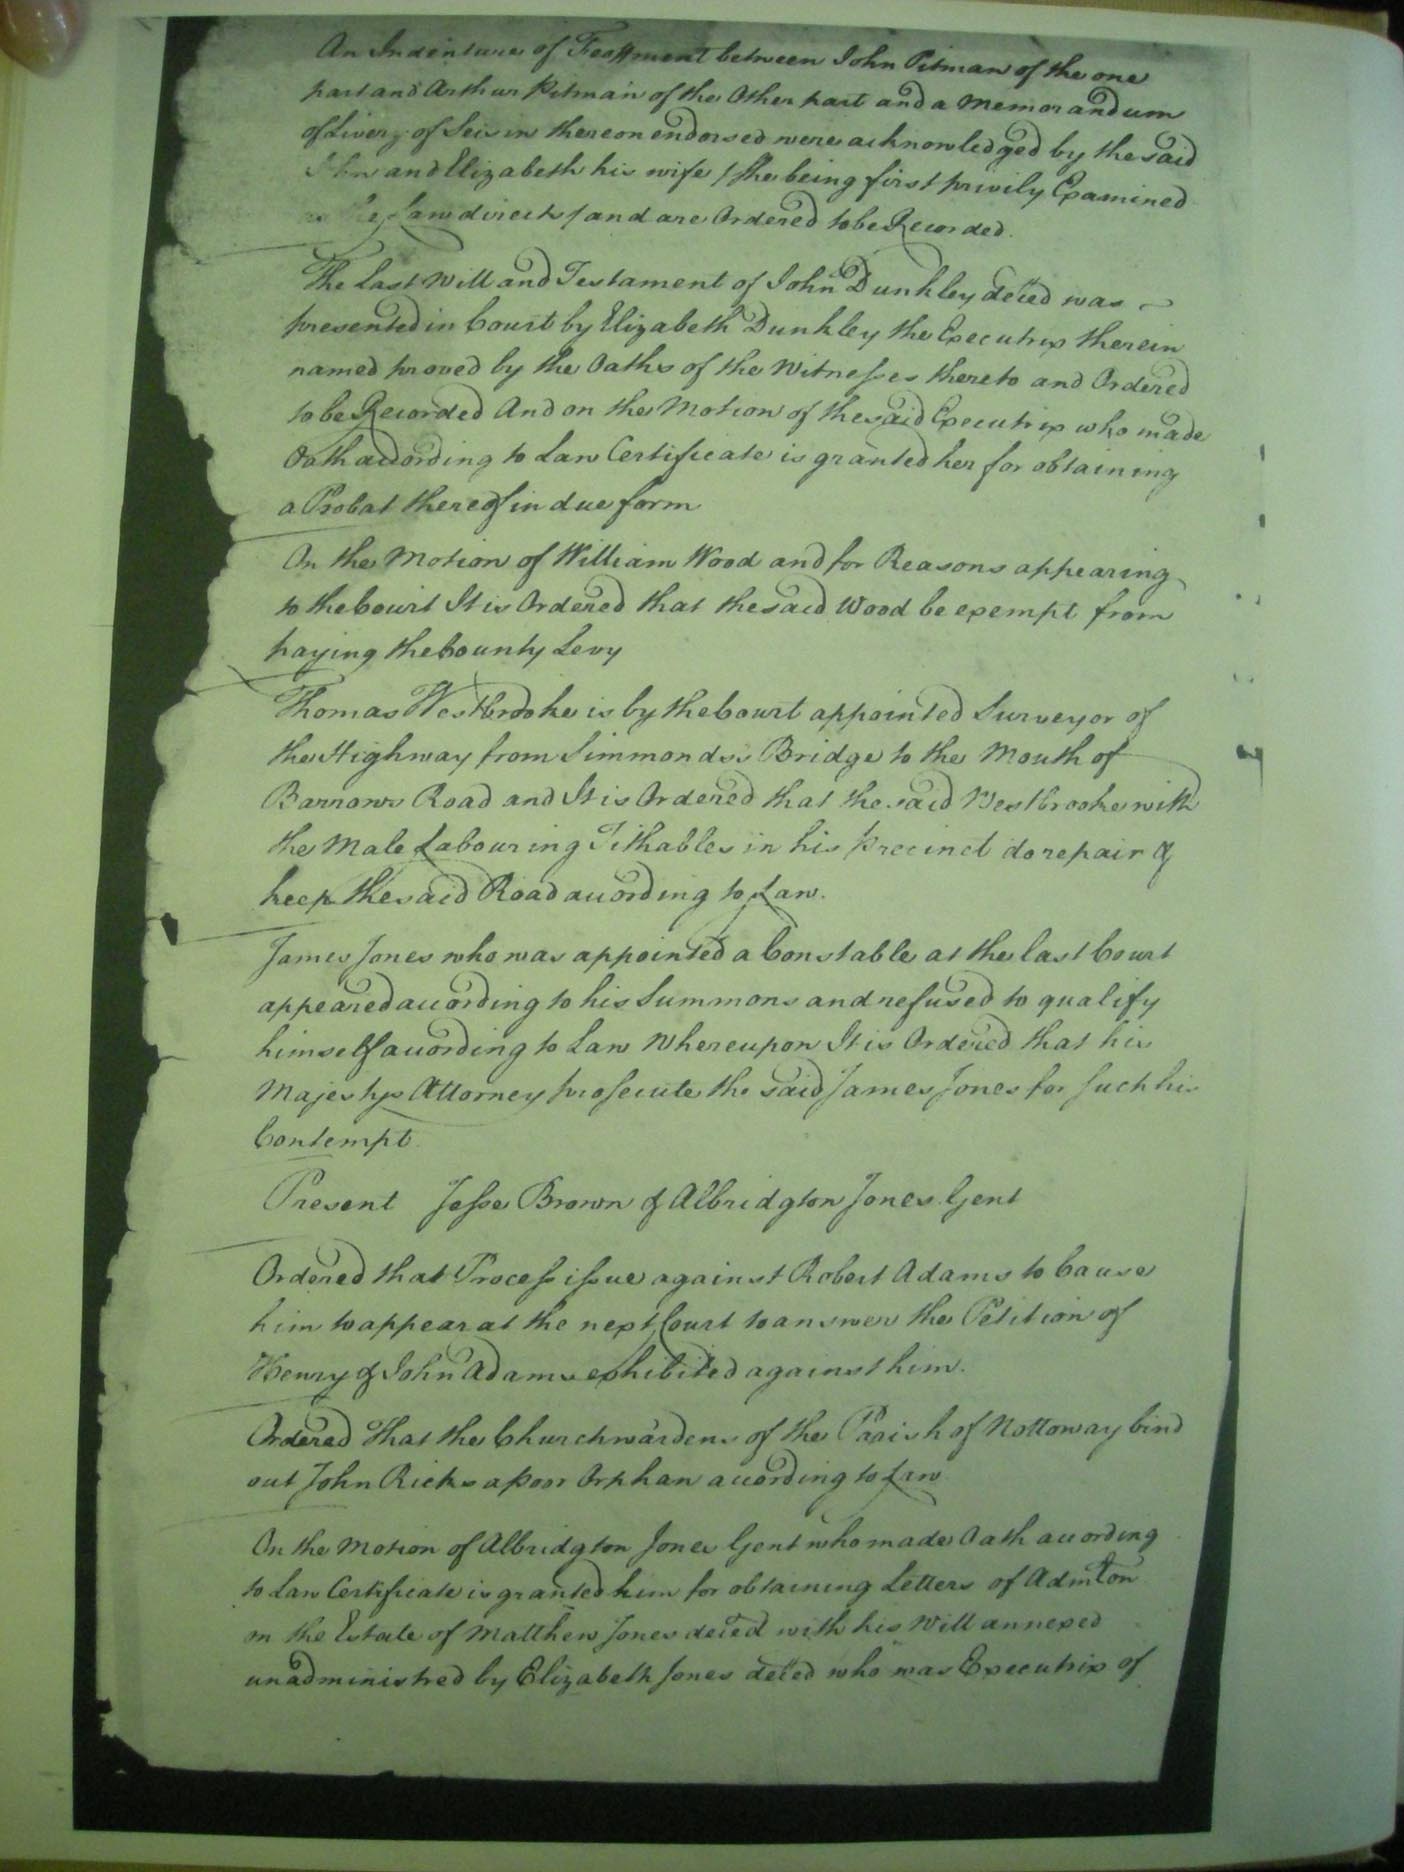 An Indenture of Feoffment between John Pitman of the one
part and Arthur Pitman of the Other part and a Memorandum
of Livery of Seisin thereon endorsed were acknowledged by the said
John and Elizabeth his wife / she being first privily Examined
as the Law directs / and are Ordered to be Recorded.
The Last Will and Testament of John Dunkley deced was
presented in Court by Elizabeth Dunkley the Executrix therein
named proved by the Oaths of the Witnesses thereto and Ordered
to be Recorded And on the Motion of the said Executrix who made
Oath according to Law Certificate is granted her for obtaining
a Probat thereof in due form
On the Motion of William Wood and for Reasons appearing
to the Court It is Ordered that the said Wood be exempt from
paying the County Levy
Thomas Westbrooke is by the Court appointed Surveyor of
the Highway from Simmonds's Bridge to the Mouth of
Barrows Road and It is Ordered that the said Westbrooke with
the Male Labouring Tithables in his precinct do repair &
keep the said Road according to Law.
James Jones who was appointed a Constable at the last Court
appeared according to his Summons and refused to qualify
himself according to Law Whereupon It is Ordered that his
Majestys Attorney prosecute the said James Jones for such his
Contempt.
Present Jesse Brown & Albridgton Jones Gent
Ordered that Process issue against Robert Adams to Cause
him to appear at the next Court to answer the Petition of
Henry & John Adams exhibited against him.
Ordered that the Churchwardens of the Parish of Nottoway bind
out John Ricks a poor Orphan according to Law
On the Motion of Albridgton Jones Gent who made Oath according
to Law Certificate is granted him for obtaining Letters of Admton
on the Estate of Matthew Jones deced with his Will annexed
unadministred by Elizabeth Jones deced who was Executrix of